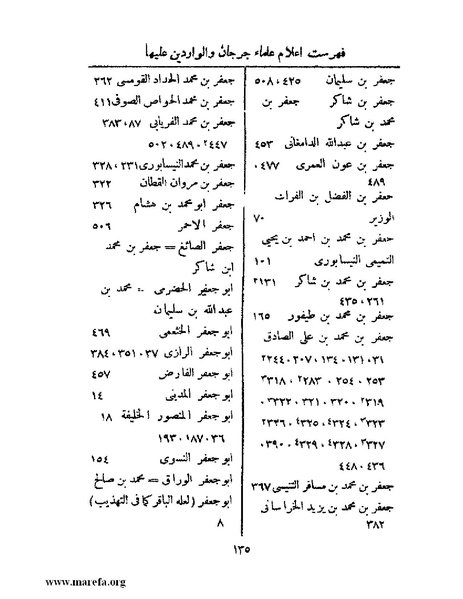 فهرست اعلام علماء جرجان والواردين عليها
جعفر بن سليمان ٤٢٥ ، ٥٠٨
جعفر بن شاكر = جعفر بن
محمد بن شاكر
جعفر بن عبدالله الدامغانى ٤٥٣
جعفر بن عون العمرى ٤٧٧ ،
٤٨٩
جعفر بن الفضل بن الفرات
الوزير ٧٠
جعفر بن محمد بن احمد بن يحيى
التميمى النيسابورى ١٠١
جعفر بن محمد بن شاكر ٢١٣١
٢٦١ ، ٤٣٥
جعفر بن محمد بن طيفور ١٦٥
جعفر بن محمد بن على الصادق
٣١ ، ١٣١ ، ١٣٤ ، ٢٠٧ ، ٢٢٤٤
٢٥٣ ، ٢٥٤ ، ٢٢٨٣ ، ٣٣١٨
٢٣١٩ ، ٣٢٠ ، ٣٢١ ، ٣٣٢٢ ،
٣٣٢٣ ، ٤٣٢٤ ، ٤٣٢٥ ، ٢٣٢٦
٢٣٢٧ ، ٤٣٢٨ ، ٤٣٢٩ ، ٣٩٠ ،
٤٣٦ ، ٤٤٨
جعفر بن محمد بن مسافر التنيسى ٣٦٧
جعفر بن محمد بن يزيد الخراسانى
٣٨٢
جعفر بن محمد الحداد القومسى ٣٦٢
جعفر بن محمد الخواص الصوفى ٤١١
جعفر بن محمد الفريابى ٨٧ ، ٣٨٣
٢٤٤٧ ، ٤٨٩ ، ٥٠٢
جعفر بن محمد النيسابورى ٢٣١ ، ٣٢٨
جعفر بن مروان القطان ٣٢٢
جعفر ابو محمد بن هشام ٣٢٦
جعفر الاحمر ٥٠٦
جعفر الصائغ = جعفر بن محمد
ابن شاكر
ابو جعفر الحضرمى = محمد بن
عبدالله بن سليمان
ابو جعفر الخثعمى ٤٦٩
ابوجعفر الرازى ٣٧ ، ٣٥١ ، ٣٨٤
ابوجعفر الفارض ٤٥٧
ابو جعفر المدينى ١٤
ابو جعفر المنصور الخليفة ١٨
٣٦ ، ١٨٧ ، ١٩٣
ابو جعفر النسوى ١٥٤
ابو جعفر الوراق = محمد بن صالح
ابو جعفر (لعله الباقر كما فى التهذيب)
٨
١٣٥
www.marefa.org